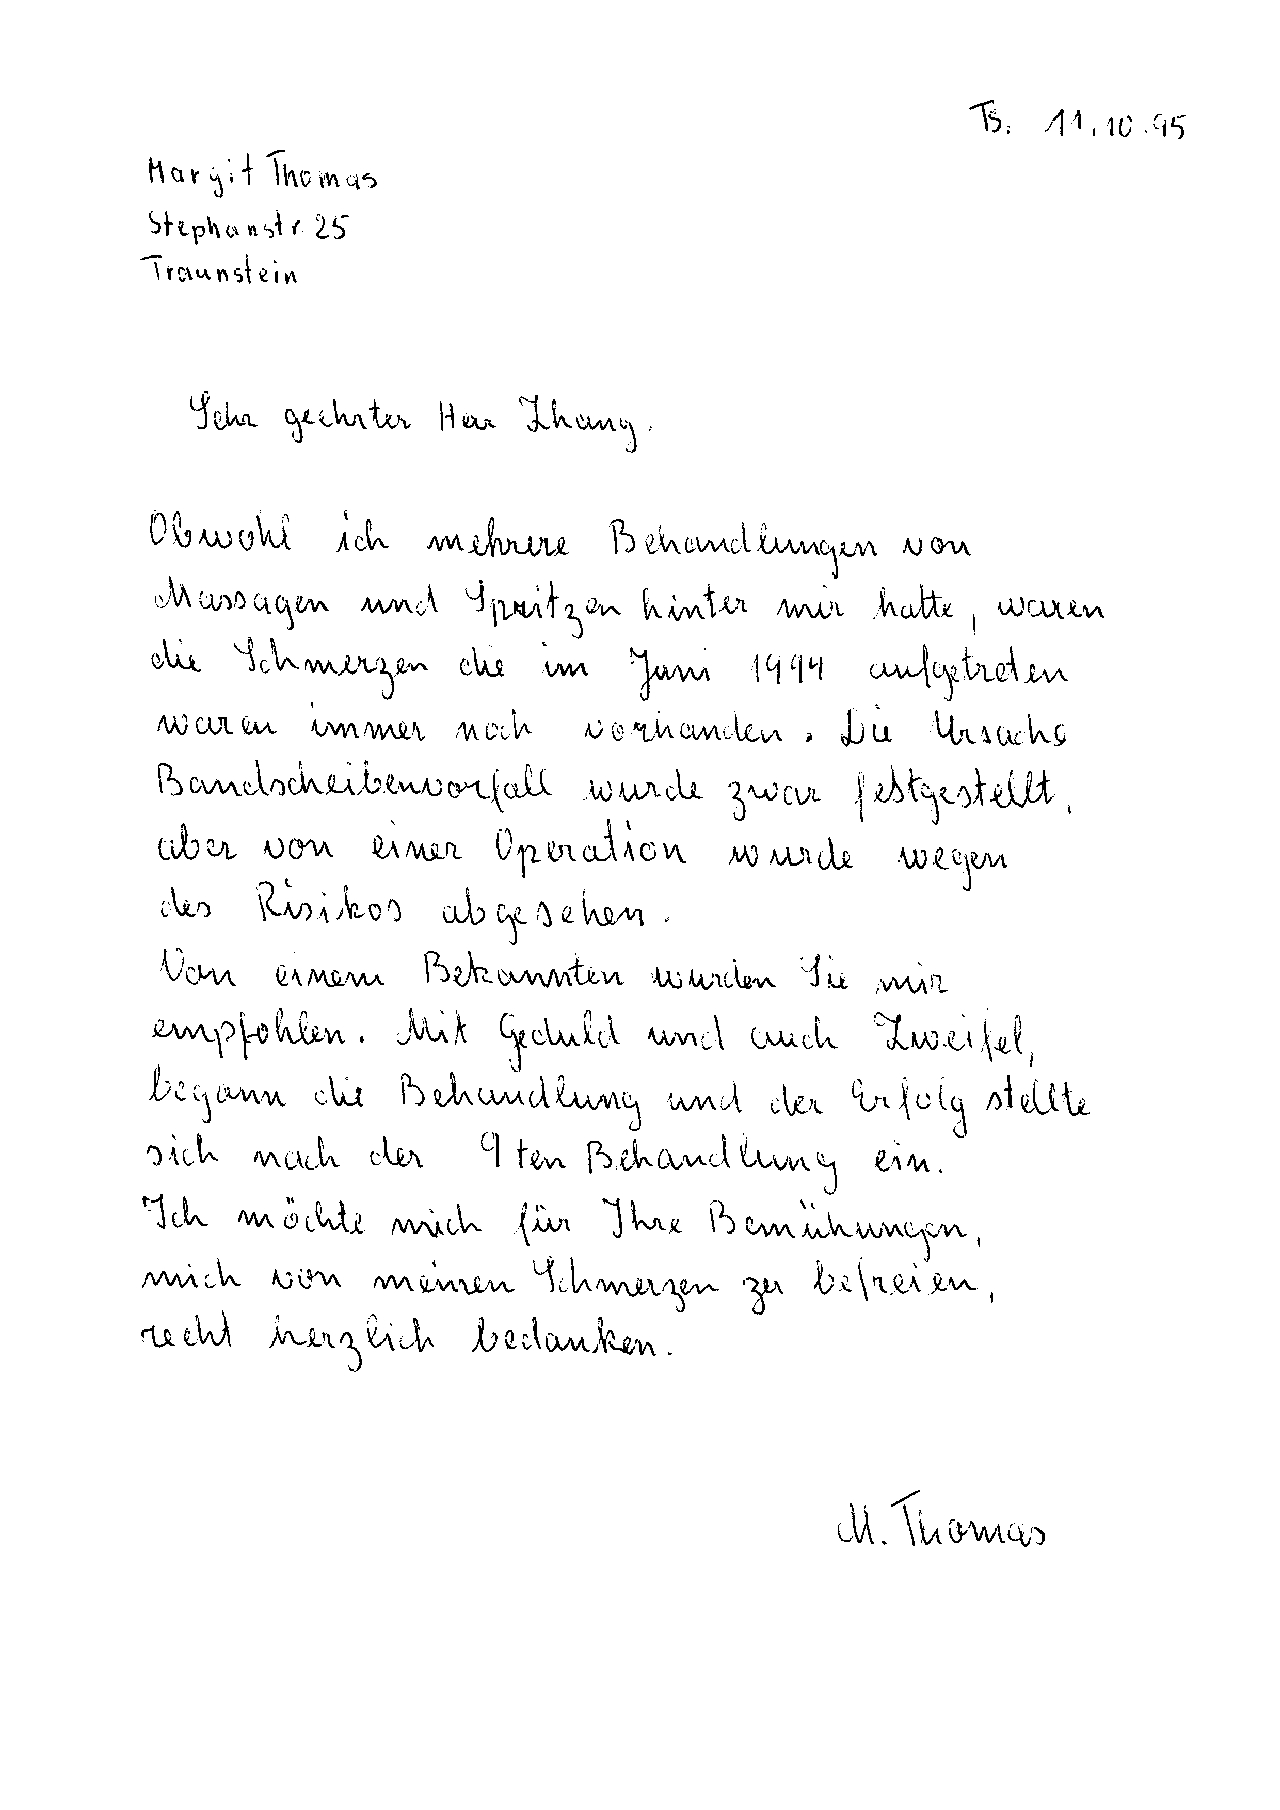 TS. 11.10.95
Margit Thomas
Stephanstr. 25
Traunstein
Sehr geehrter Herr Zhang.
Obwohl ich mehrere Behandlungen von
Massagen und Spritzen hinter mir hatte, waren
die Schmerzen die im Juni 1994 aufgetreten
waren immer noch vorhanden. Die Ursache
Bandscheibenvorfall wurde zwar festgestellt,
aber von einer Operation wurde wegen
des Risikos abgesehen.
Von einem Bekannten wurden Sie mir
empfohlen. Mit Geduld und auch Zweifel,
begann die Behandlung und der Erfolg stellte
sich nach der 9ten Behandlung ein.
Ich möchte mich für Ihre Bemühungen,
mich von meinen Schmerzen zu befreien,
recht herzlich bedanken.
M. Thomas